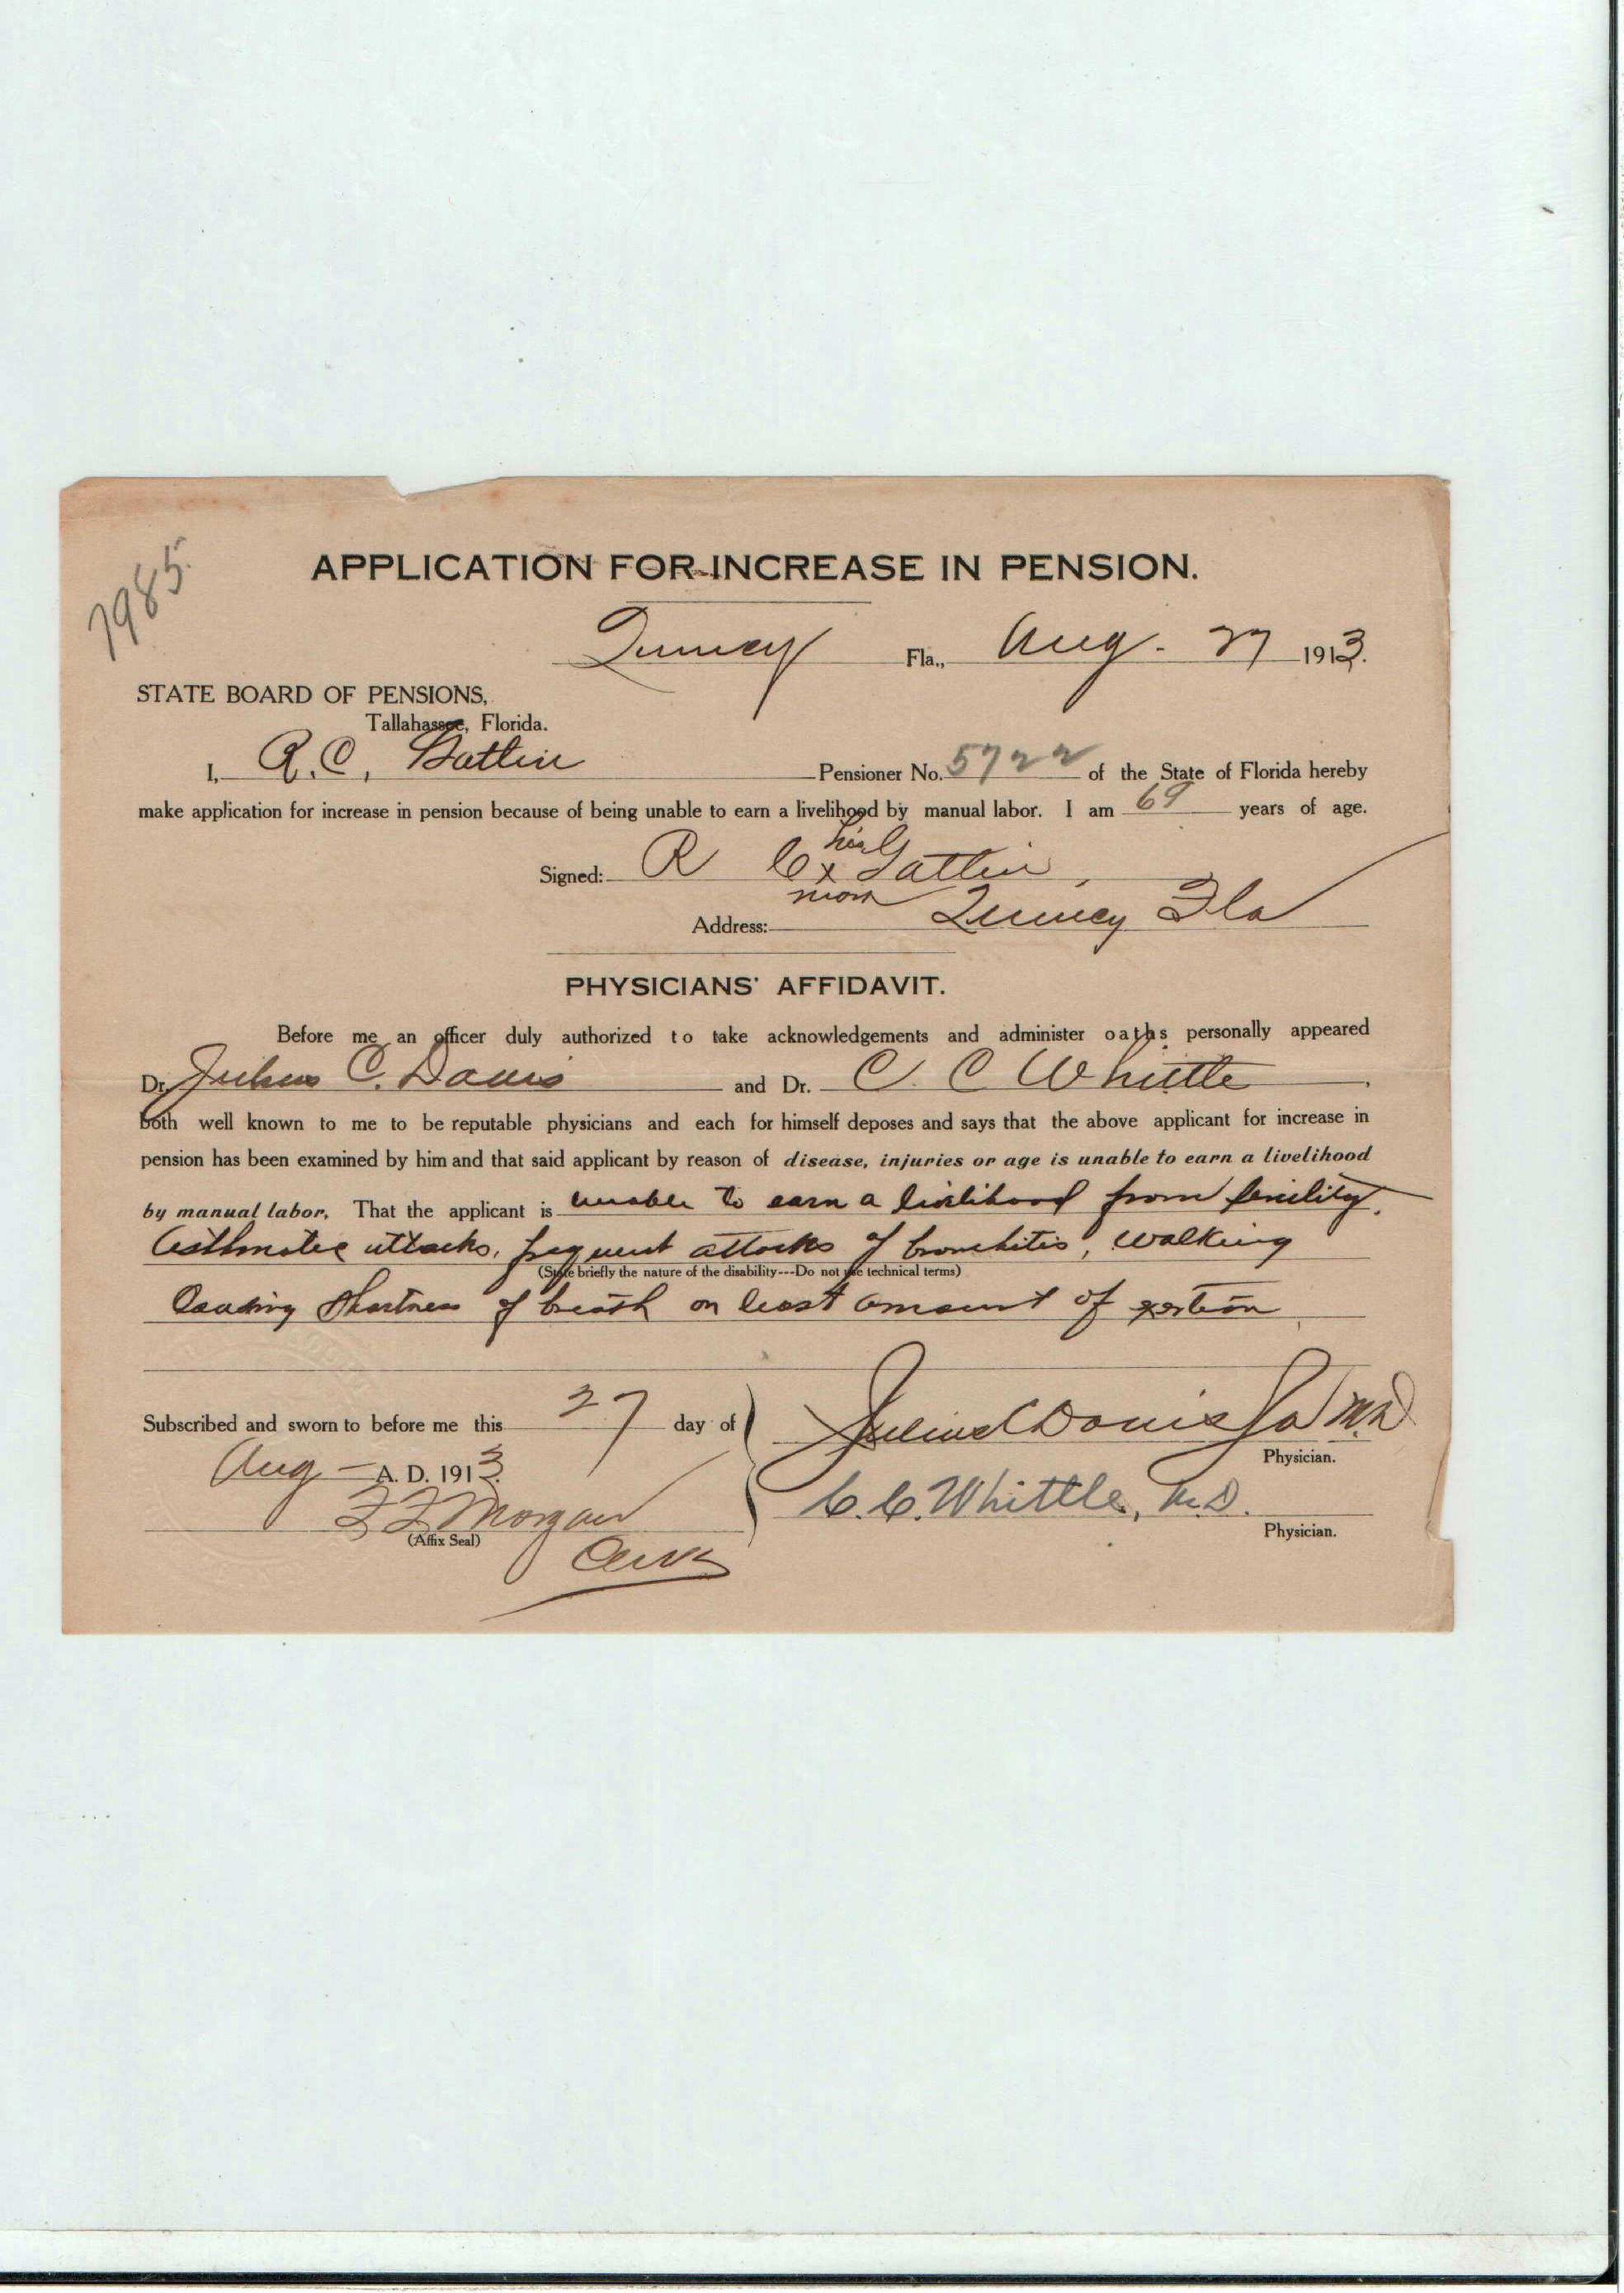 7985.
APPLICATION FOR INCREASE IN PENSION.
Quincy Fla., Aug. 27 1913.
STATE BOARD OF PENSIONS,
Tallahassee, Florida.
I, R. C. Gatlin Pensioner No. 5722 of the State of Florida hereby
make application for increase in pension because of being unable to earn a livelihood by manual labor. I am 69 years of age.
his
Signed: R C x Gatlin,
mark
Address: Quincy Fla
PHYSICIANS' AFFIDAVIT.
Before me an officer duly authorized to take acknowledgements and administer oaths personally appeared
Dr. Julius C. Davis and Dr. C. C Whittle
both well known to me to be reputable physicians and each for himself deposes and says that the above applicant for increase in
pension has been examined by him and that said applicant by reason of disease, injuries or age is unable to earn a livelihood
by manual labor. That the applicant is unable to earn a livlihood from senility,
Asthmatic attacks, frequent attacks of bronchitis, walking
(State briefly the nature of the disability---Do not use technical terms)
Causing Shortness of breath on least amount of exertion
Subscribed and sworn to before me this 27 day of
Julius C Davis M.D
Physician.
Aug - A. D. 1913.
C. C. Whittle, M.D.
Physician.
F F Morgan
(Affix Seal)
Clerk